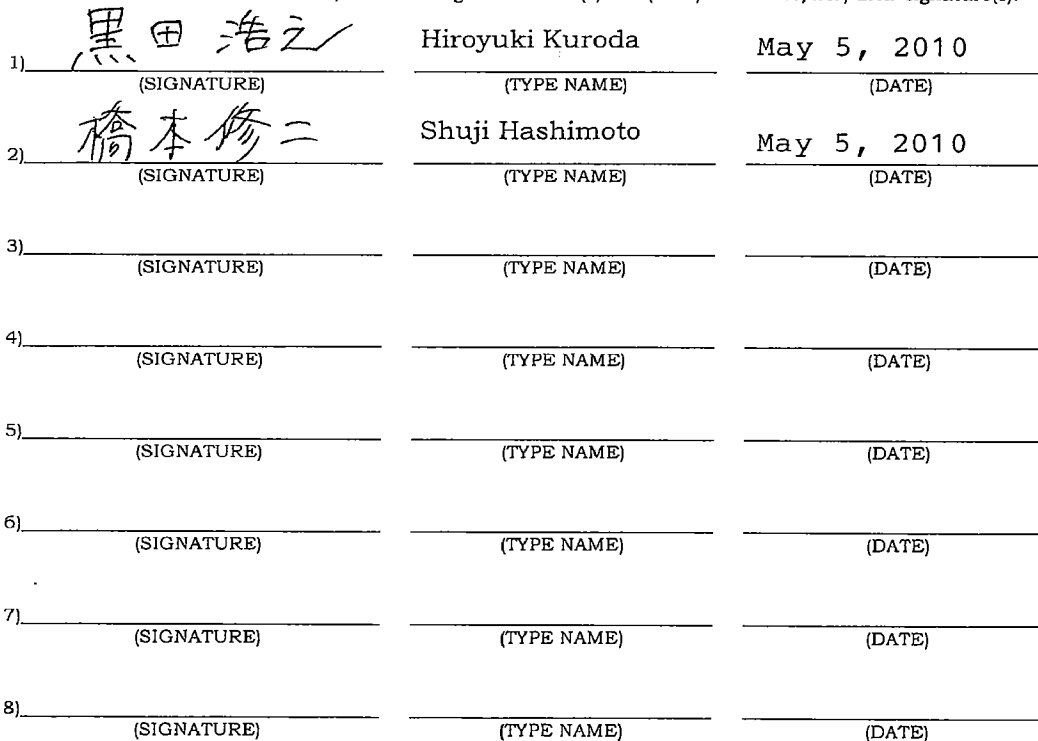 黒田 浩之 Hiroyuki Kuroda May 5, 2010
1) (SIGNATURE) (TYPE NAME) (DATE)
橋本修二 Shuji Hashimoto May 5, 2010
2) (SIGNATURE) (TYPE NAME) (DATE)
3) (SIGNATURE) (TYPE NAME) (DATE)
4) (SIGNATURE) (TYPE NAME) (DATE)
5) (SIGNATURE) (TYPE NAME) (DATE)
6) (SIGNATURE) (TYPE NAME) (DATE)
7) (SIGNATURE) (TYPE NAME) (DATE)
8) (SIGNATURE) (TYPE NAME) (DATE)